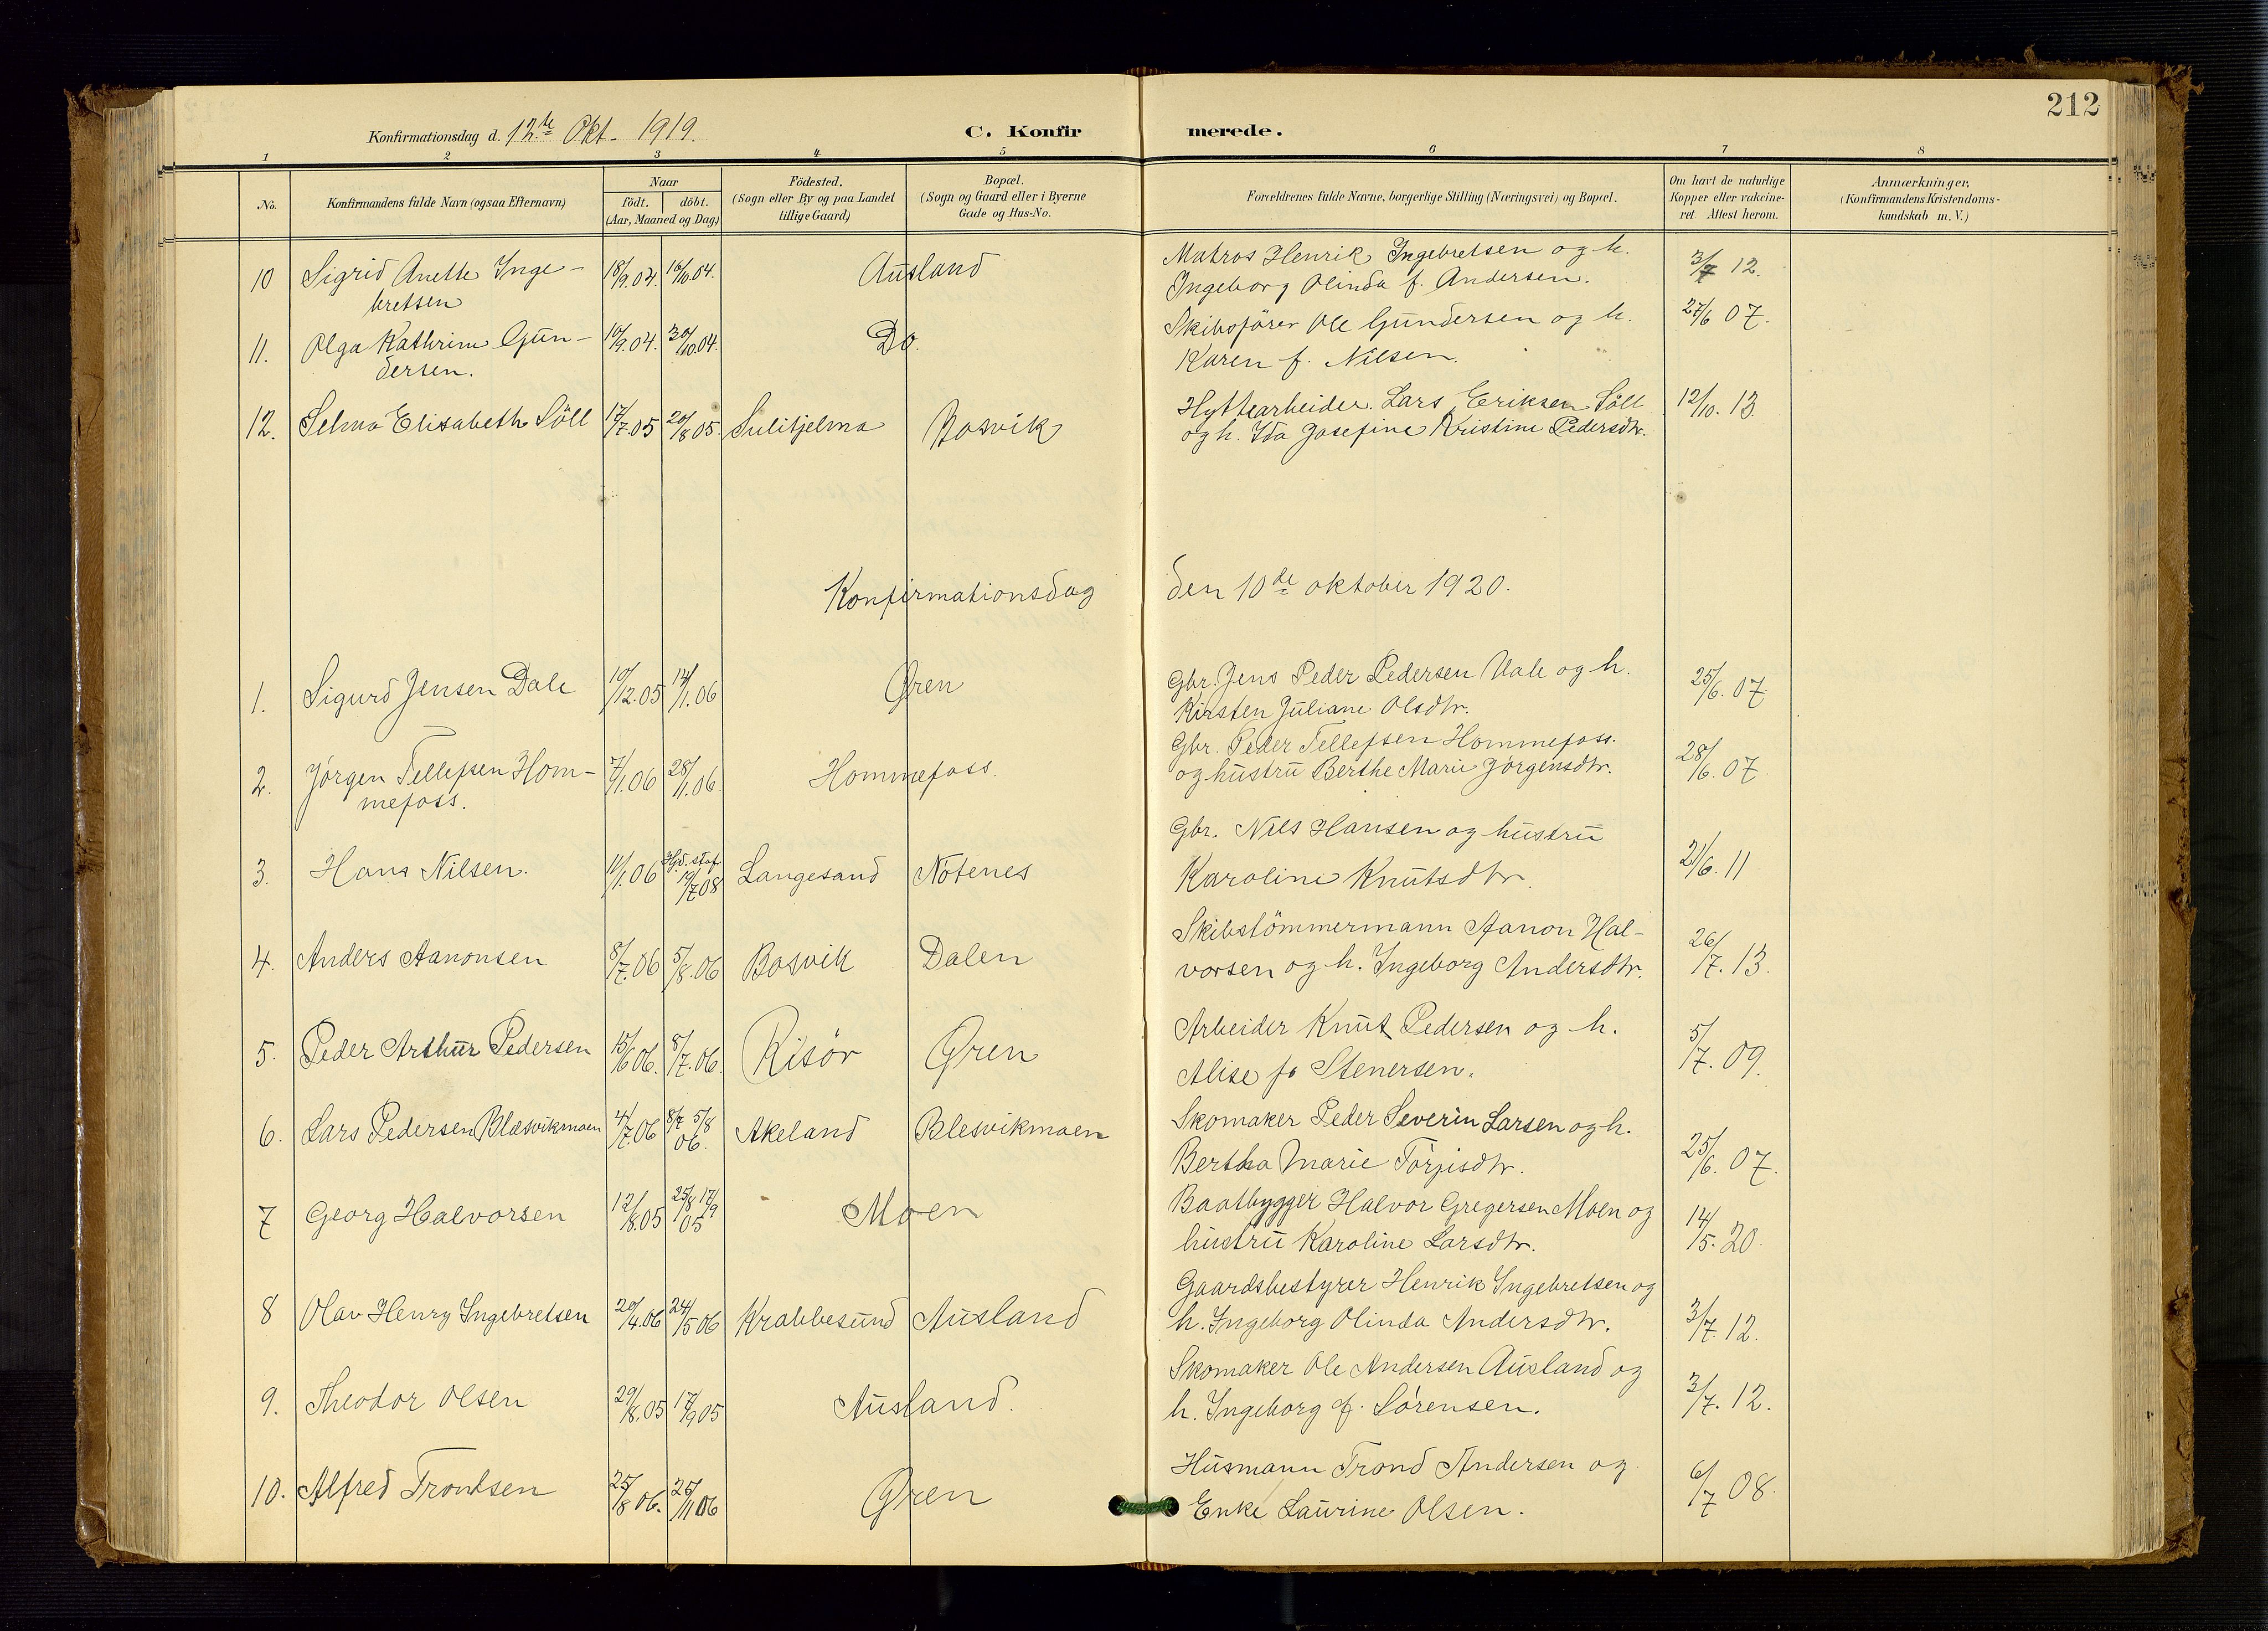 212
Konfirmationsdag d. 12te Okt. 1919.
C. Konfirmerede.
1 2 3 4 5 6 7 8
No.
Konfirmandens fulde Navn (ogsaa Efternavn)
Naar
födt. döbt.
(Aar, Maaned og Dag)
Födested.
(Sogn eller By og paa Landet
tillige Gaard)
Bopæl.
(Sogn og Gaard eller i Byerne
Gade og Hus-No.
Forældrenes fulde Navne, borgerlige Stilling (Næringsvei) og Bopæl.
Om havt de naturlige
Kopper eller vakcine-
ret Attest herom.
Anmærkninger.
(Konfirmandens Kristendoms-
kundskab m. V.)
10 Sigrid Anette Inge-
bretsen
18/9.04. 16/10.04. Ausland
Matros Henrik Ingebretsen og h.
Ingeborg Olinda f. Andersen.
3/7 12.
11. Olga Kathrine Gun-
dersen.
10/9.04. 30/10.04. Do.
Skibsförer Ole Gundersen og h.
Karen f. Nilsen.
27/6 07.
12. Selma Elisabeth Söll 17/7.05 20/8 05. Sulitjelma Bosvik
Hyttearbeider Lars Eriksen Söll
og h. Ida Josefine Kristine Pedersdtr.
12/10. 13.
Konfirmationsdag den 10de oktober 1920.
1. Sigurd Jensen Dale 10/12.05 14/1.06 Gren
Gbr. Jens Peder Pedersen Dale og h.
Kirsten Juliane Olsdtr.
25/6. 07.
2. Jörgen Tellefsen Hom-
mefoss.
7/1.06 28/1.06. Hommefoss.
Gbr. Peder Tellefsen Hommefoss.
og hustru Berthe Marie Jörgensdtr.
28/6. 07.
3. Hans Nilsen. 11/1.06 Hjd. staf. 19/7 08 Langesand Nötenes
Gbr. Nils Hansen og hustru
Karoline Knutsdtr.
21/6. 11
4. Anders Aanonsen 8/7.06 5/8.06 Bosvik Dalen
Skibstömmermann Aanon Hal-
vorsen og h. Ingeborg Andersdtr.
26/7. 13.
5. Peder Arthur Pedersen 15/6 06. 8/7.06. Risör Gren
Arbeider Knut Pedersen og h.
Alise fo Stenersen.
5/7. 09.
6. Lars Pedersen Blæsvikmoen 4/7.06 8/7 5/8 06. Akeland Blesvikmoen
Skomaker Peder Severin Larsen og h.
Bertha Marie Törjisdtr.
25/6. 07.
7 Georg Halvorsen 12/8.05 25/8 17/9 05 Moen
Baatbygger Halvor Gregersen Moen og
hustru Karoline Larsdtr.
14/5. 20.
8 Olav Henry Ingebretsen 20/4.06 24/5 06 Krabbesund Ausland
Gaardsbestyrer Henrik Ingebretsen og
h. Ingeborg Olinda Andersdtr.
3/7. 12.
9. Theodor Olsen 29/8.05 17/9 05 Ausland.
Skomaker Ole Andersen Ausland og
h. Ingeborg f. Sörensen.
3/7. 12.
10. Alfred Trondsen 25/8 06. 25/11 06 Gren
Husmann Trond Andersen og
Enke Laurine Olsen.
6/7 08.